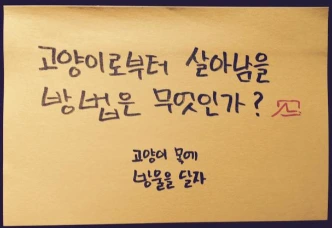 고양이로부터 살아남을
방법은 무엇인가?
고양이 목에
방울을 달자